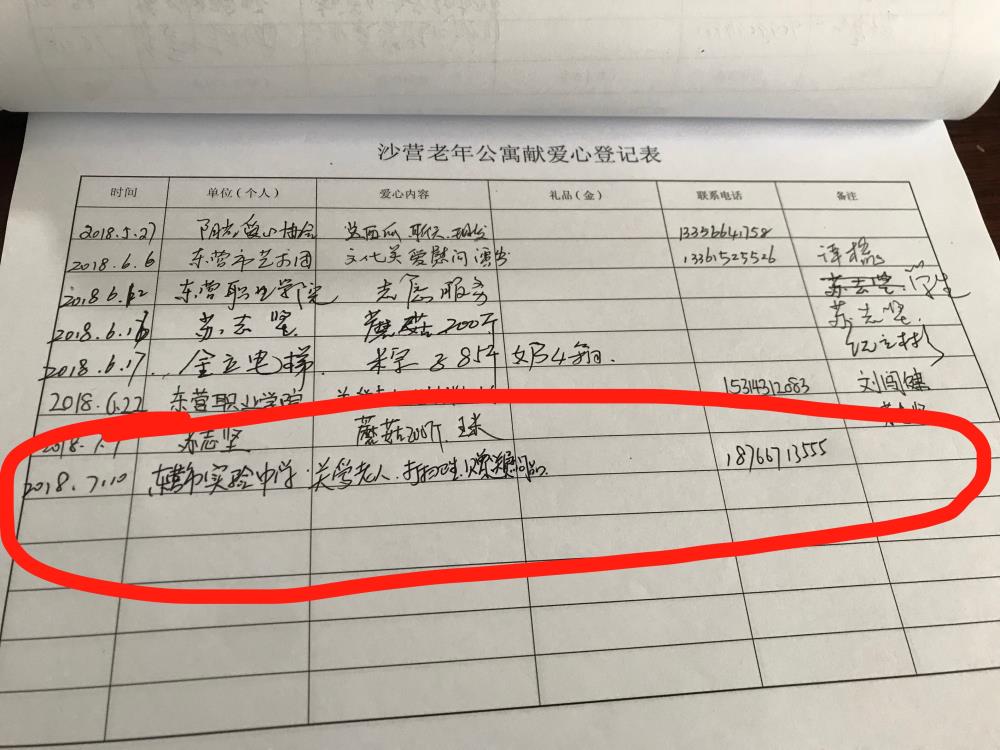 沙营老年公寓献爱心登记表
时间 单位（个人） 爱心内容 礼品（金） 联系电话 备注
2018.5.27 阳光爱心协会 送西瓜 聊天 13356641758
2018.6.6 东营市艺术团 文化关爱慰问演出 13361525526
2018 6.12 东营职业学院 志愿服务 苏志坚 学生
2018.6.13 苏志坚 蘑菇200斤 苏志坚
2018.6.17 金立电梯 米字 85斤 奶4箱
2018.6.22 东营职业学院 15314312083 刘闯健
2018.7.1 苏志坚 蘑菇200斤 玉米
2018.7.10 东营市实验中学 关爱老人、打扫卫生 18766713555